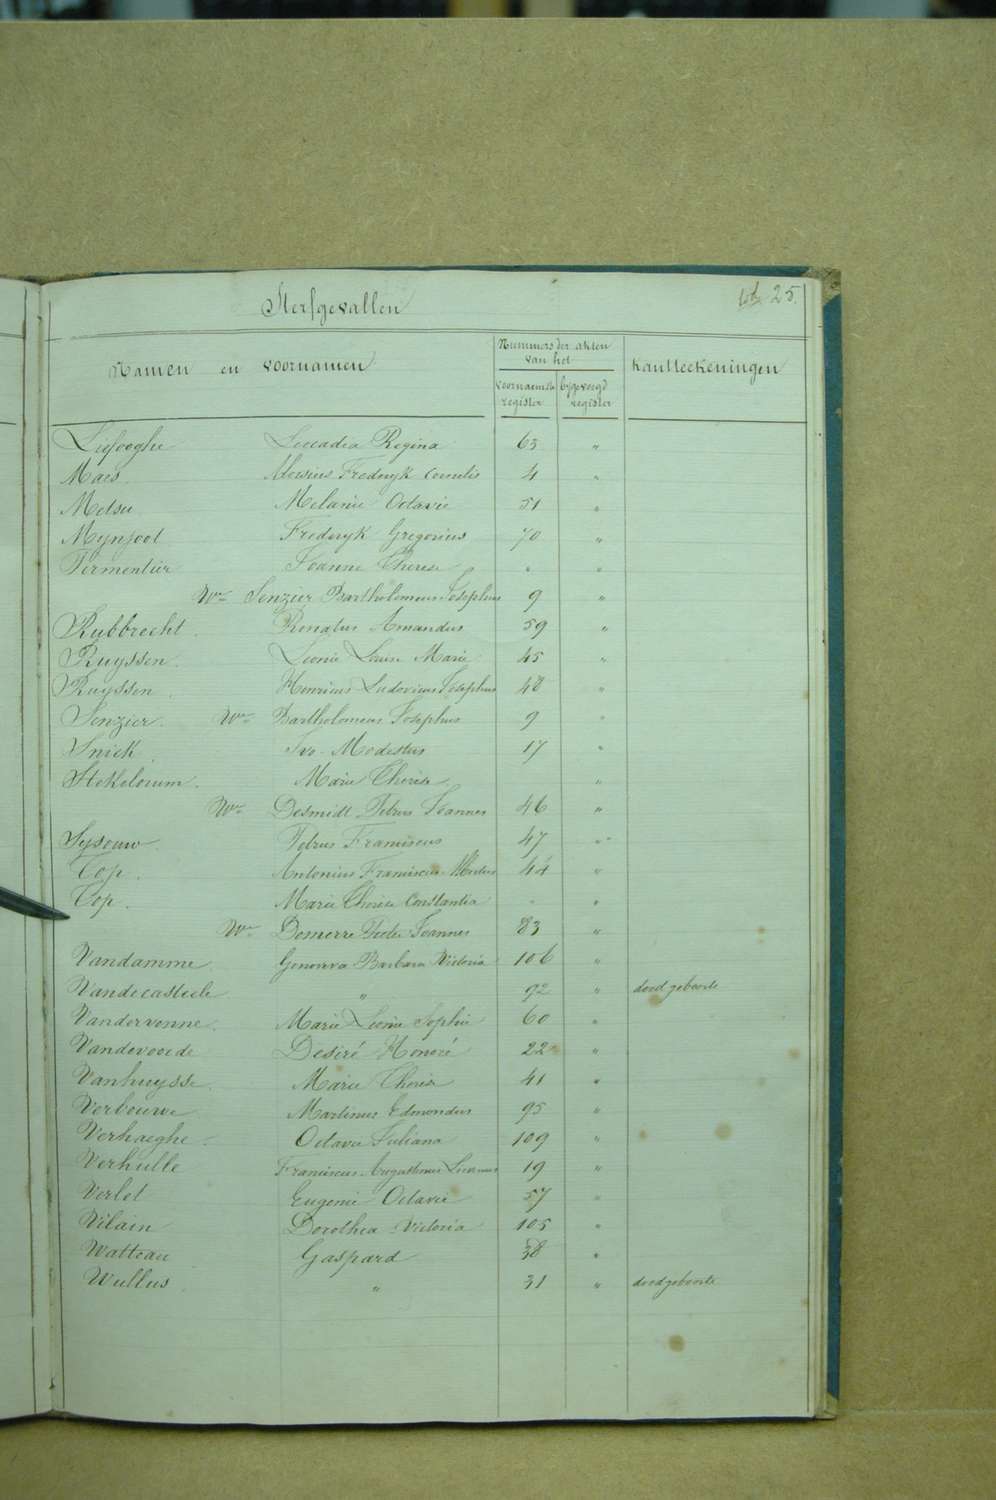 Sterfgevallen 25.
Namen en voornamen Nummers der akten van het kantteekeningen
voornaamste register bijgevoegd register
Liefooghe Leocadia Regina 63 "
Maes. Aloisius Frederyk Cornelis 4 "
Metsu Melanie Octavie 51 "
Mynsoot Frederyk Gregorius 70 "
Permentier Joanna Therese " "
We Senzier Bartholomeus Josephus 9 "
Rubbrecht. Renatus Amandus 59 "
Ruyssen. Leonie Laure Marie 45 "
Ruyssen. Henricus Ludovicus Josephus 48 "
Senzier. We Bartholomeus Josephus 9 "
Sniek. Ivo Modestus 17 "
Stekelorum. Marie Therese "
We Desmidt Petrus Joannes 46 "
Sysouw. Petrus Franciscus 47 "
Top. Antonius Franciscus 44 "
Top. Marie Therese Constantia " "
We Demerre Pieter Joannes 83 "
Vandamme. Genoveva Barbara Victoria 106 "
Vandecasteele " 92 " doodgeboorte
Vandervenne. Marie Leonie Sophie 60 "
Vandevoorde Desiré Honoré 22 "
Vanhuysse. Marie Therese 41 "
Verbeurve Martinus Edmondus 95 "
Verhaeghe. Octavie Juliana 109 "
Verhulle Franciscus Augustinus Livinus 19 "
Verlet Eugenie Octavie 57 "
Vilain Dorothea Victoria 105 "
Watteau Gaspard 38 "
Wullus. " 31 " doodgeboorte